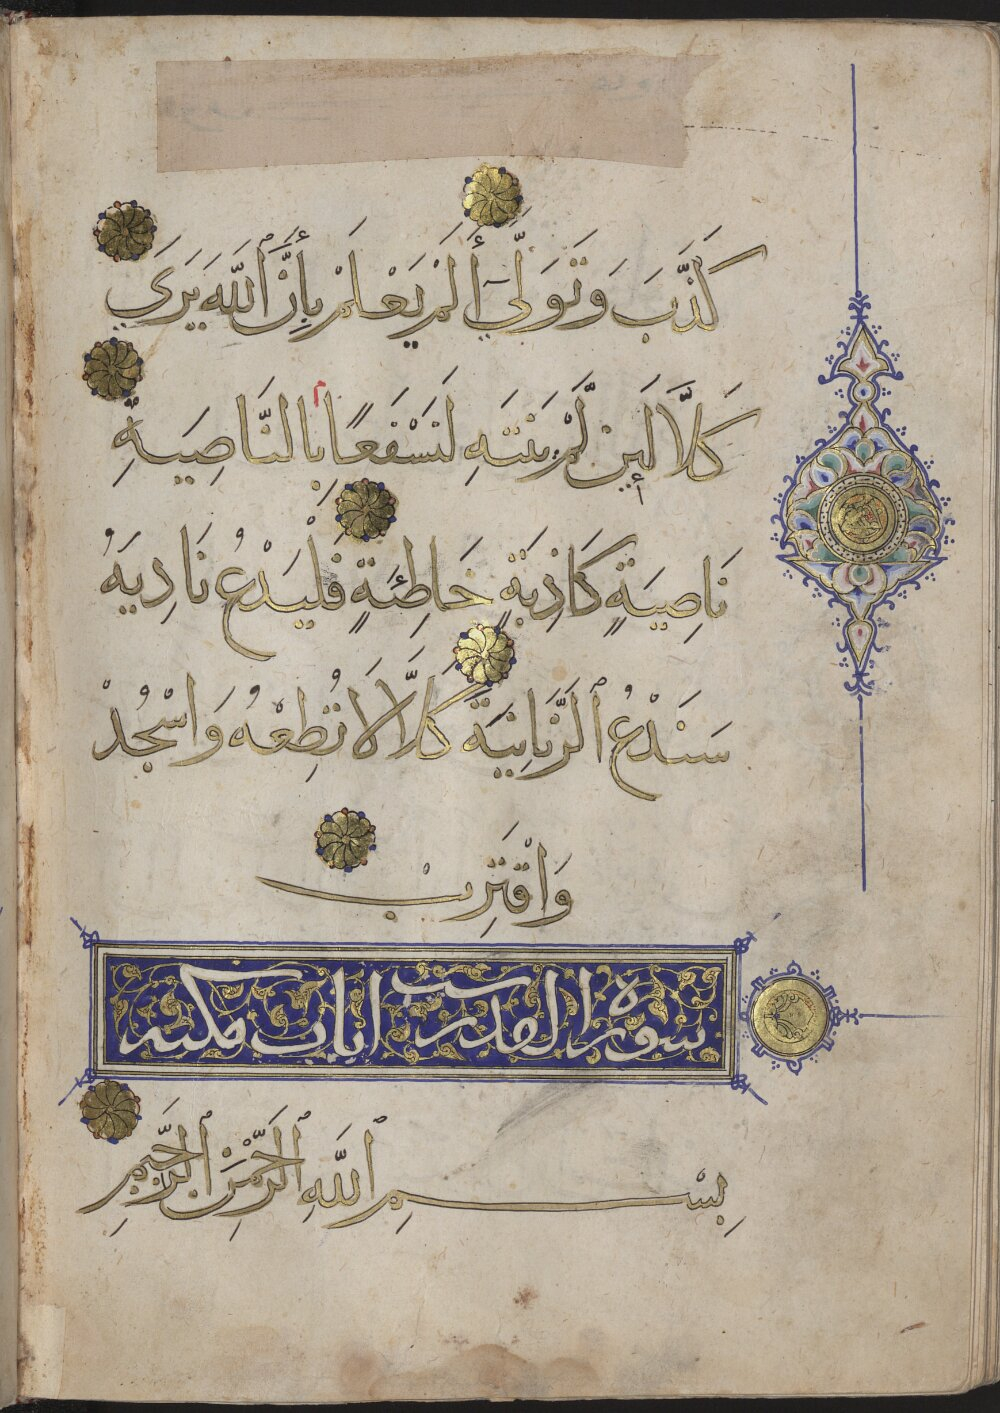 كَذَّبَ وَتَوَلَّىٰ أَلَمْ يَعْلَمْ بِأَنَّ ٱللَّهَ يَرَىٰ
كَلَّا لَئِن لَّمْ يَنتَهِ لَنَسْفَعًا بِالنَّاصِيَةِ
نَاصِيَةٍ كَاذِبَةٍ خَاطِئَةٍ فَلْيَدْعُ نَادِيَهُ
سَنَدْعُ ٱلزَّبَانِيَةَ كَلَّا لَا تُطِعْهُ وَاسْجُدْ
وَاقْتَرِبْ
سورة القدر ست ايات مكية
بِسْمِ ٱللَّهِ ٱلرَّحْمَنِ ٱلرَّحِيمِ